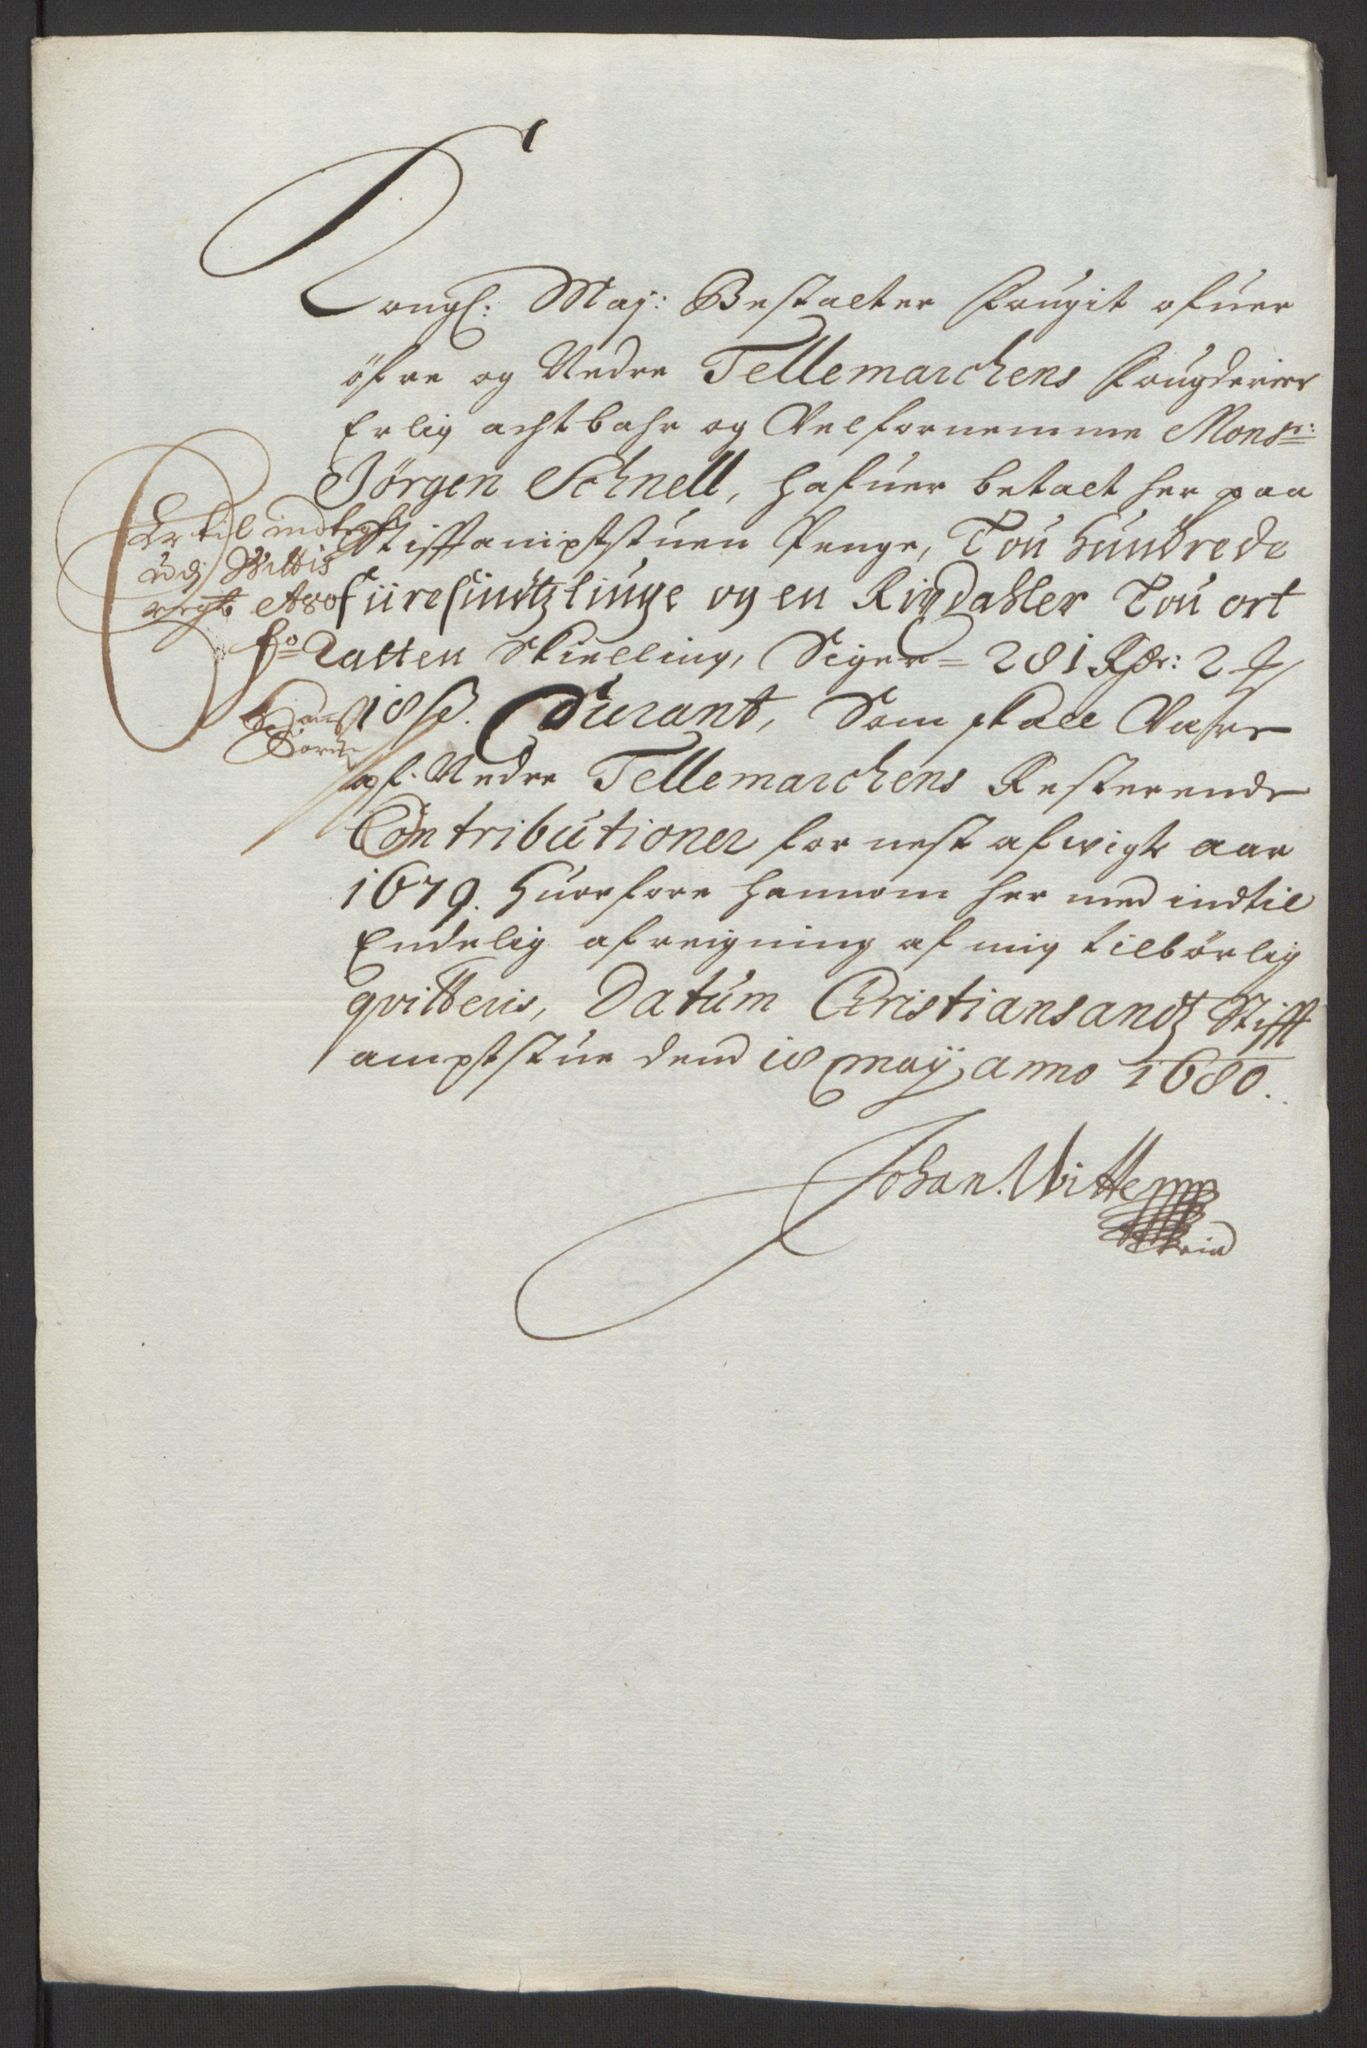 Kongl: Maj: Bestalter Fougit ofuer
öfre og Nedre Tellemarchens Fougderier
Erlig achtbahr og Velfornemme Monsr:
Jörgen Schnell, hafuer betalt her paa
Stiffamptstuen Penge, Tou Hundrede
fiiresindtztiuge og en Rixdahler Tou ort
Hatten Skielling, Siger = 281 Rdr: 2
18 ß. Curant, Som skall Være
af Nedre Tellemarchens Resterende
Contributioner for nest afvigte aar
1679. Huorfore hannom her med indtil
Endelig afreigning af mig tilbörlig
qvitteris, Datum Christiansandtz Stifft
amptstue dend 18 may anno 1680.
Johan Wittemn
Er til indtegt
udj Wittis
A80
fo